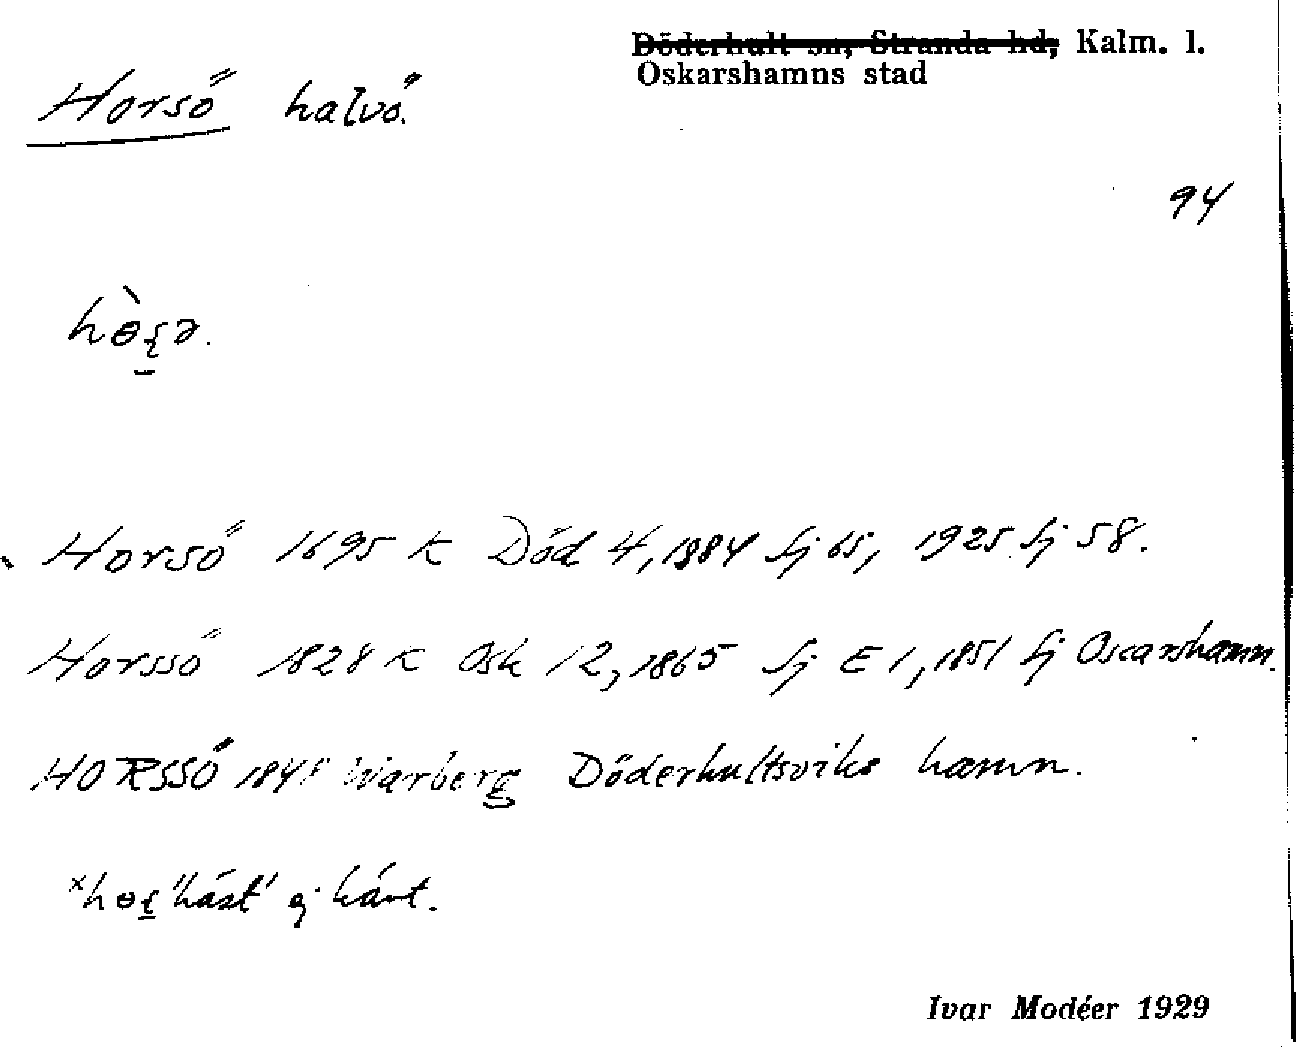 Döderhult sn, Stranda hd, Kalm. l.
Oskarshamns stad
Horsö halvö.
94
Horsö 1695 K Död 4, 1884 Sj 65, 1925 Sj 58.
Horssö 1828 K Osk 12, 1865 Sj E 1, 1851 Sj Oscarshamn.
HORSSÖ Warberg Döderhultsviks hamn.
'häst' ej hört.
Ivar Modéer 1929